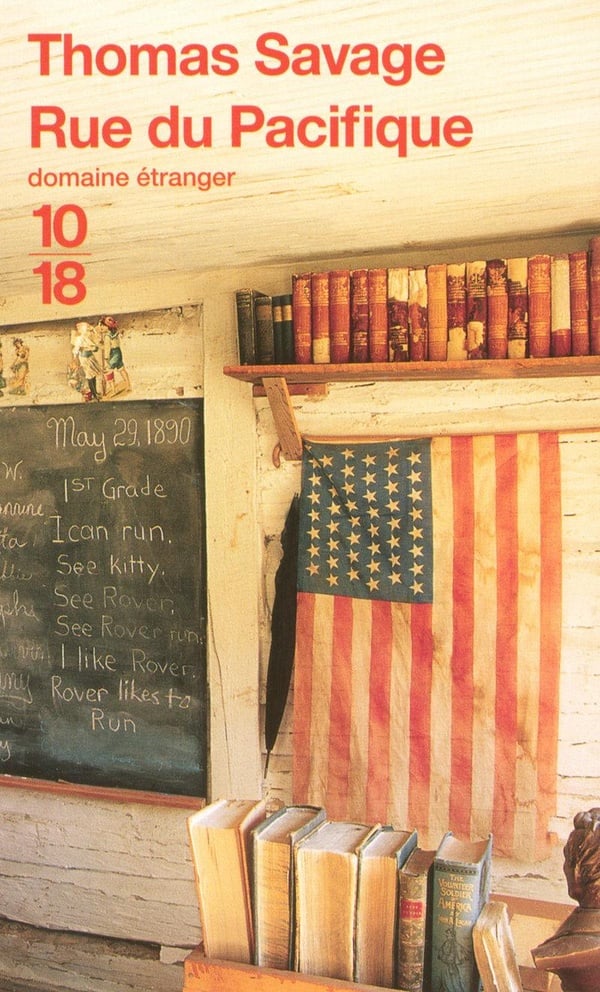 Thomas Savage
Rue du Pacifique
domaine étranger
10
18
May 29, 1890
1ST Grade
I can run.
See kitty.
See Rover.
See Rover run.
I like Rover.
Rover likes to
Run
W.
THE
VOLUNTEER
SOLDIER
OF
AMERICA
BY
JOHN A. LOGAN